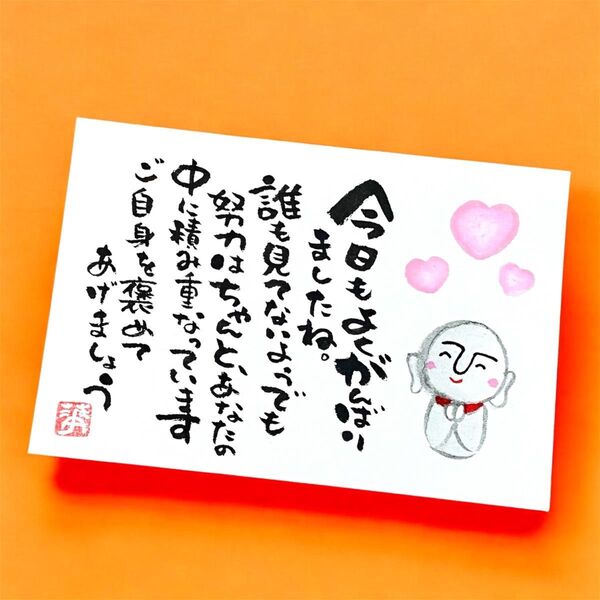 今日もよくがんばり
ましたね。
誰も見てないようでも
努力はちゃんと、あなたの
中に積み重なっています
ご自身を褒めて
あげましょう